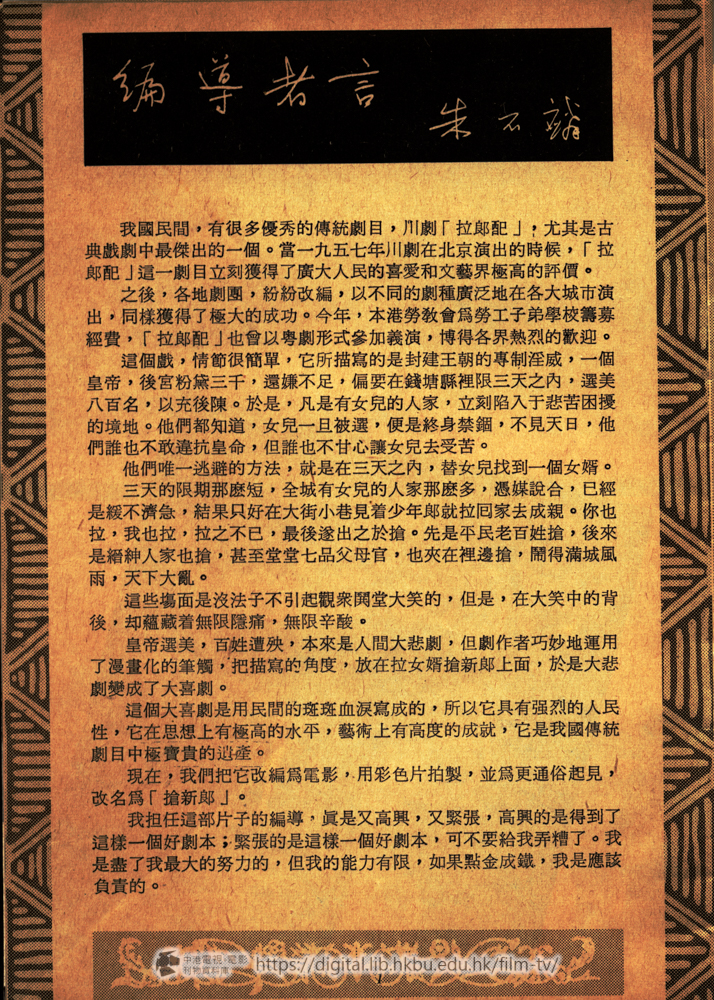 編導者言
朱石麟
我國民間，有很多優秀的傳統劇目，川劇「拉郎配」，尤其是古
典戲劇中最傑出的一個。當一九五七年川劇在北京演出的時候，「拉
郎配」這一劇目立刻獲得了廣大人民的喜愛和文藝界極高的評價。
之後，各地劇團，紛紛改編，以不同的劇種廣泛地在各大城市演
出，同樣獲得了極大的成功。今年，本港勞敎會爲勞工子弟學校籌募
經費，「拉郎配」也曾以粤劇形式參加義演，博得各界熱烈的歡迎。
這個戲，情節很簡單，它所描寫的是封建王朝的專制淫威，一個
皇帝，後宮粉黛三千，還嫌不足，偏要在錢塘縣裡限三天之內，選美
八百名，以充後陳。於是，凡是有女兒的人家，立刻陷入于悲苦困擾
的境地。他們都知道，女兒一旦被選，便是終身禁錮，不見天日，他
們誰也不敢違抗皇命，但誰也不甘心讓女兒去受苦。
他們唯一逃避的方法，就是在三天之內，替女兒找到一個女婿。
三天的限期那麽短，全城有女兒的人家那麽多，憑媒說合，已經
是緩不濟急，結果只好在大街小巷見着少年郎就拉囘家去成親。你也
拉，我也拉，拉之不已，最後遂出之於搶。先是平民老百姓搶，後來
是縉紳人家也搶，甚至堂堂七品父母官，也夾在裡邊搶，鬧得滿城風
雨，天下大亂。
這些塲面是沒法子不引起觀衆鬨堂大笑的，但是，在大笑中的背
後，却蘊藏着無限隱痛，無限辛酸。
皇帝選美，百姓遭殃，本來是人間大悲劇，但劇作者巧妙地運用
了漫畫化的筆觸，把描寫的角度，放在拉女婿搶新郎上面，於是大悲
劇變成了大喜劇。
這個大喜劇是用民間的斑斑血淚寫成的，所以它具有强烈的人民
性，它在思想上有極高的水平，藝術上有高度的成就，它是我國傳統
劇目中極寶貴的遺產。
現在，我們把它改編爲電影，用彩色片拍製，並爲更通俗起見，
改名爲「搶新郎」。
我担任這部片子的編導，眞是又高興，又緊張，高興的是得到了
這樣一個好劇本；緊張的是這樣一個好劇本，可不要給我弄糟了。我
是盡了我最大的努力的，但我的能力有限，如果點金成鐵，我是應該
負責的。
中港電視·電影
刊物資料庫
https://digital.lib.hkbu.edu.hk/film-tv/